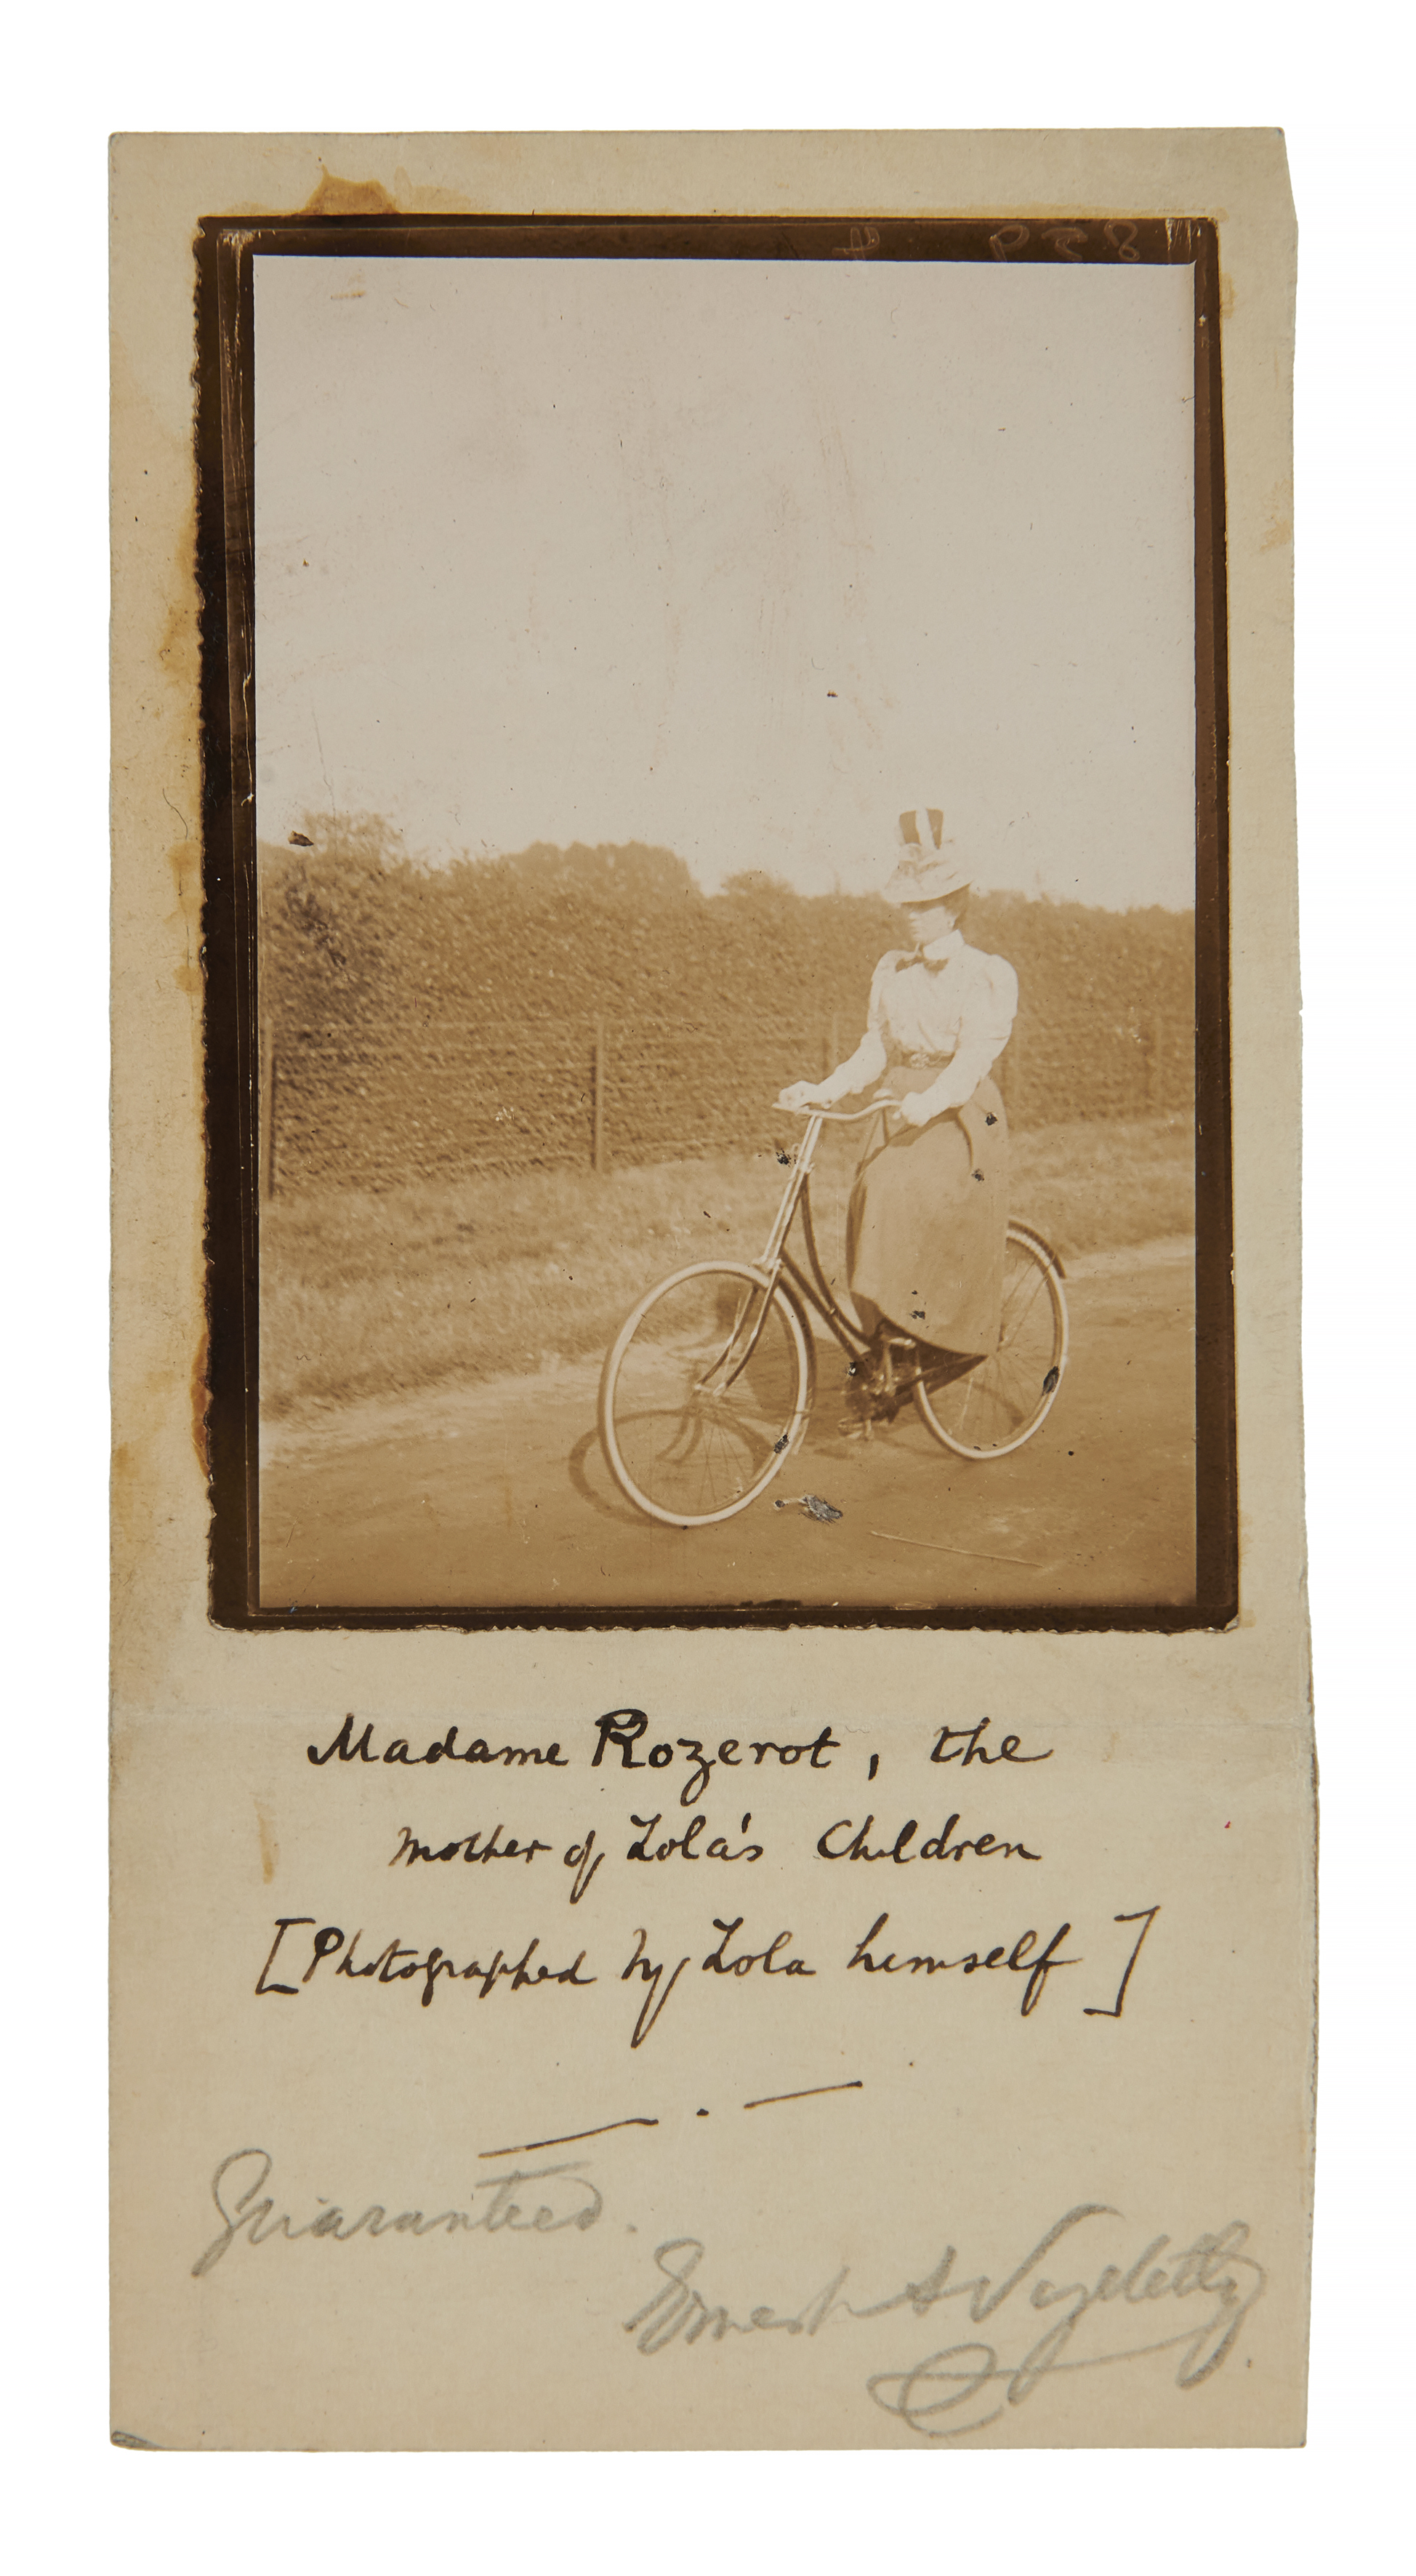 859 4
Madame Rozerot, the
mother of Zola's Children
[Photographed by Zola himself]
Guaranteed.
Ernest A Vizetelly